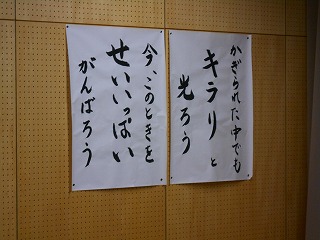 かぎられた中でも
キラリと
光ろう
今、このときを
せいいっぱい
がんばろう